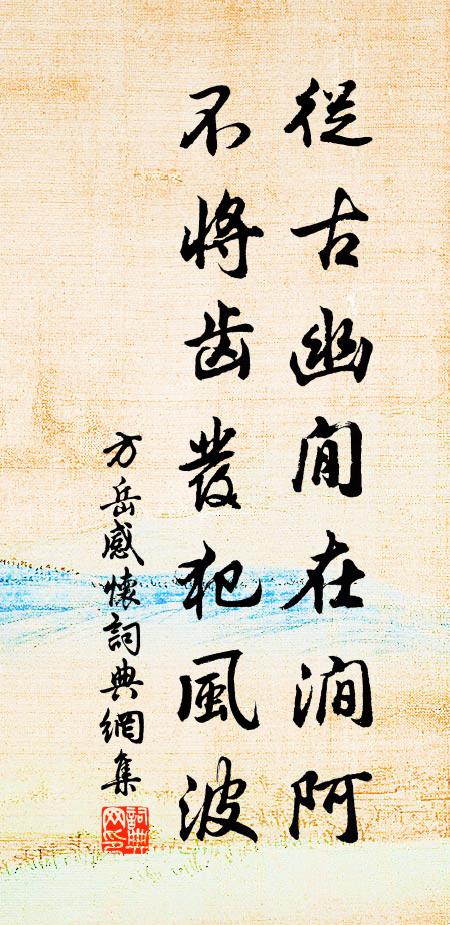 從古幽閒在澗阿
不將齒發犯風波
方岳感懷詞典網集
詞典网印